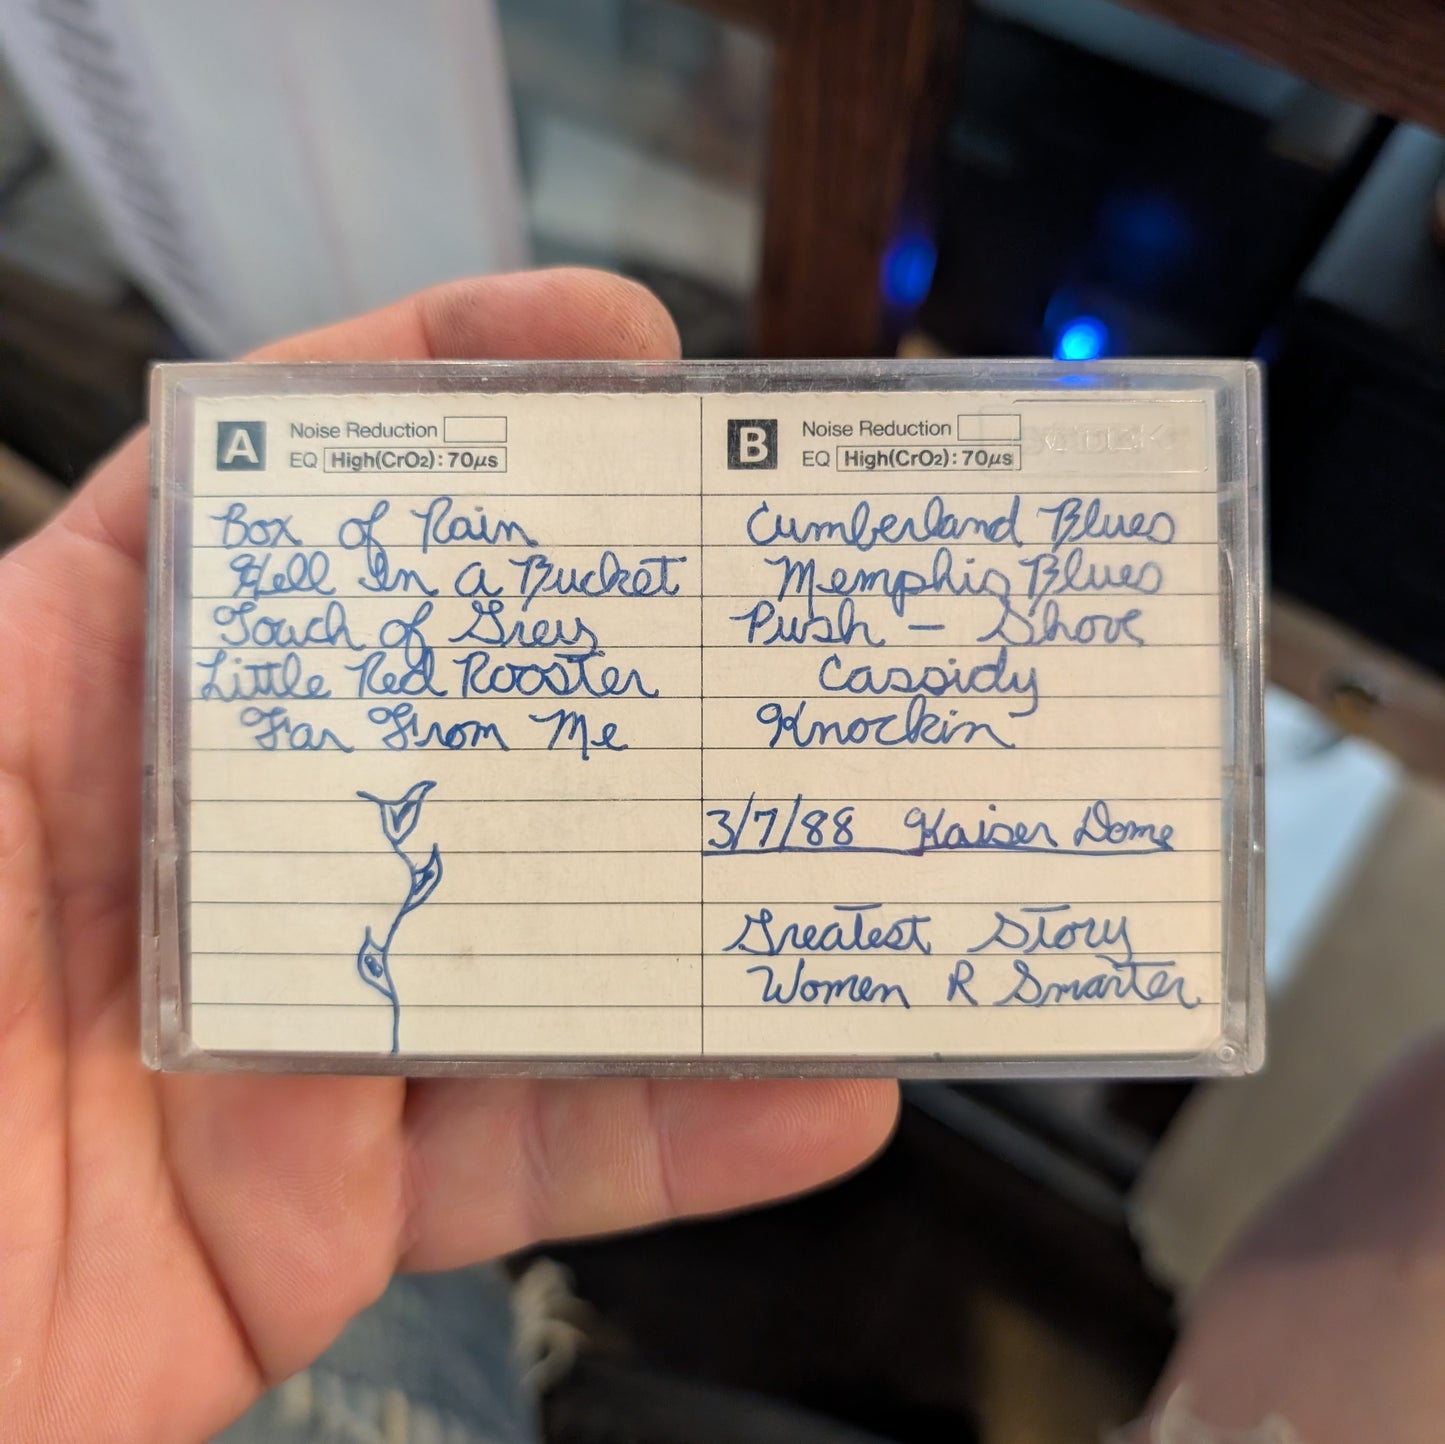 A Noise Reduction
EQ High(CrO2): 70μs
Box of Rain
Hell In a Bucket
Touch of Grey
Little Red Rooster
Far From Me
B Noise Reduction
EQ High(CrO2): 70μs
Cumberland Blues
Memphis Blues
Push - Shove
Cassidy
Knockin
3/7/88 Kaiser Dome
Greatest Story
Women R Smarter